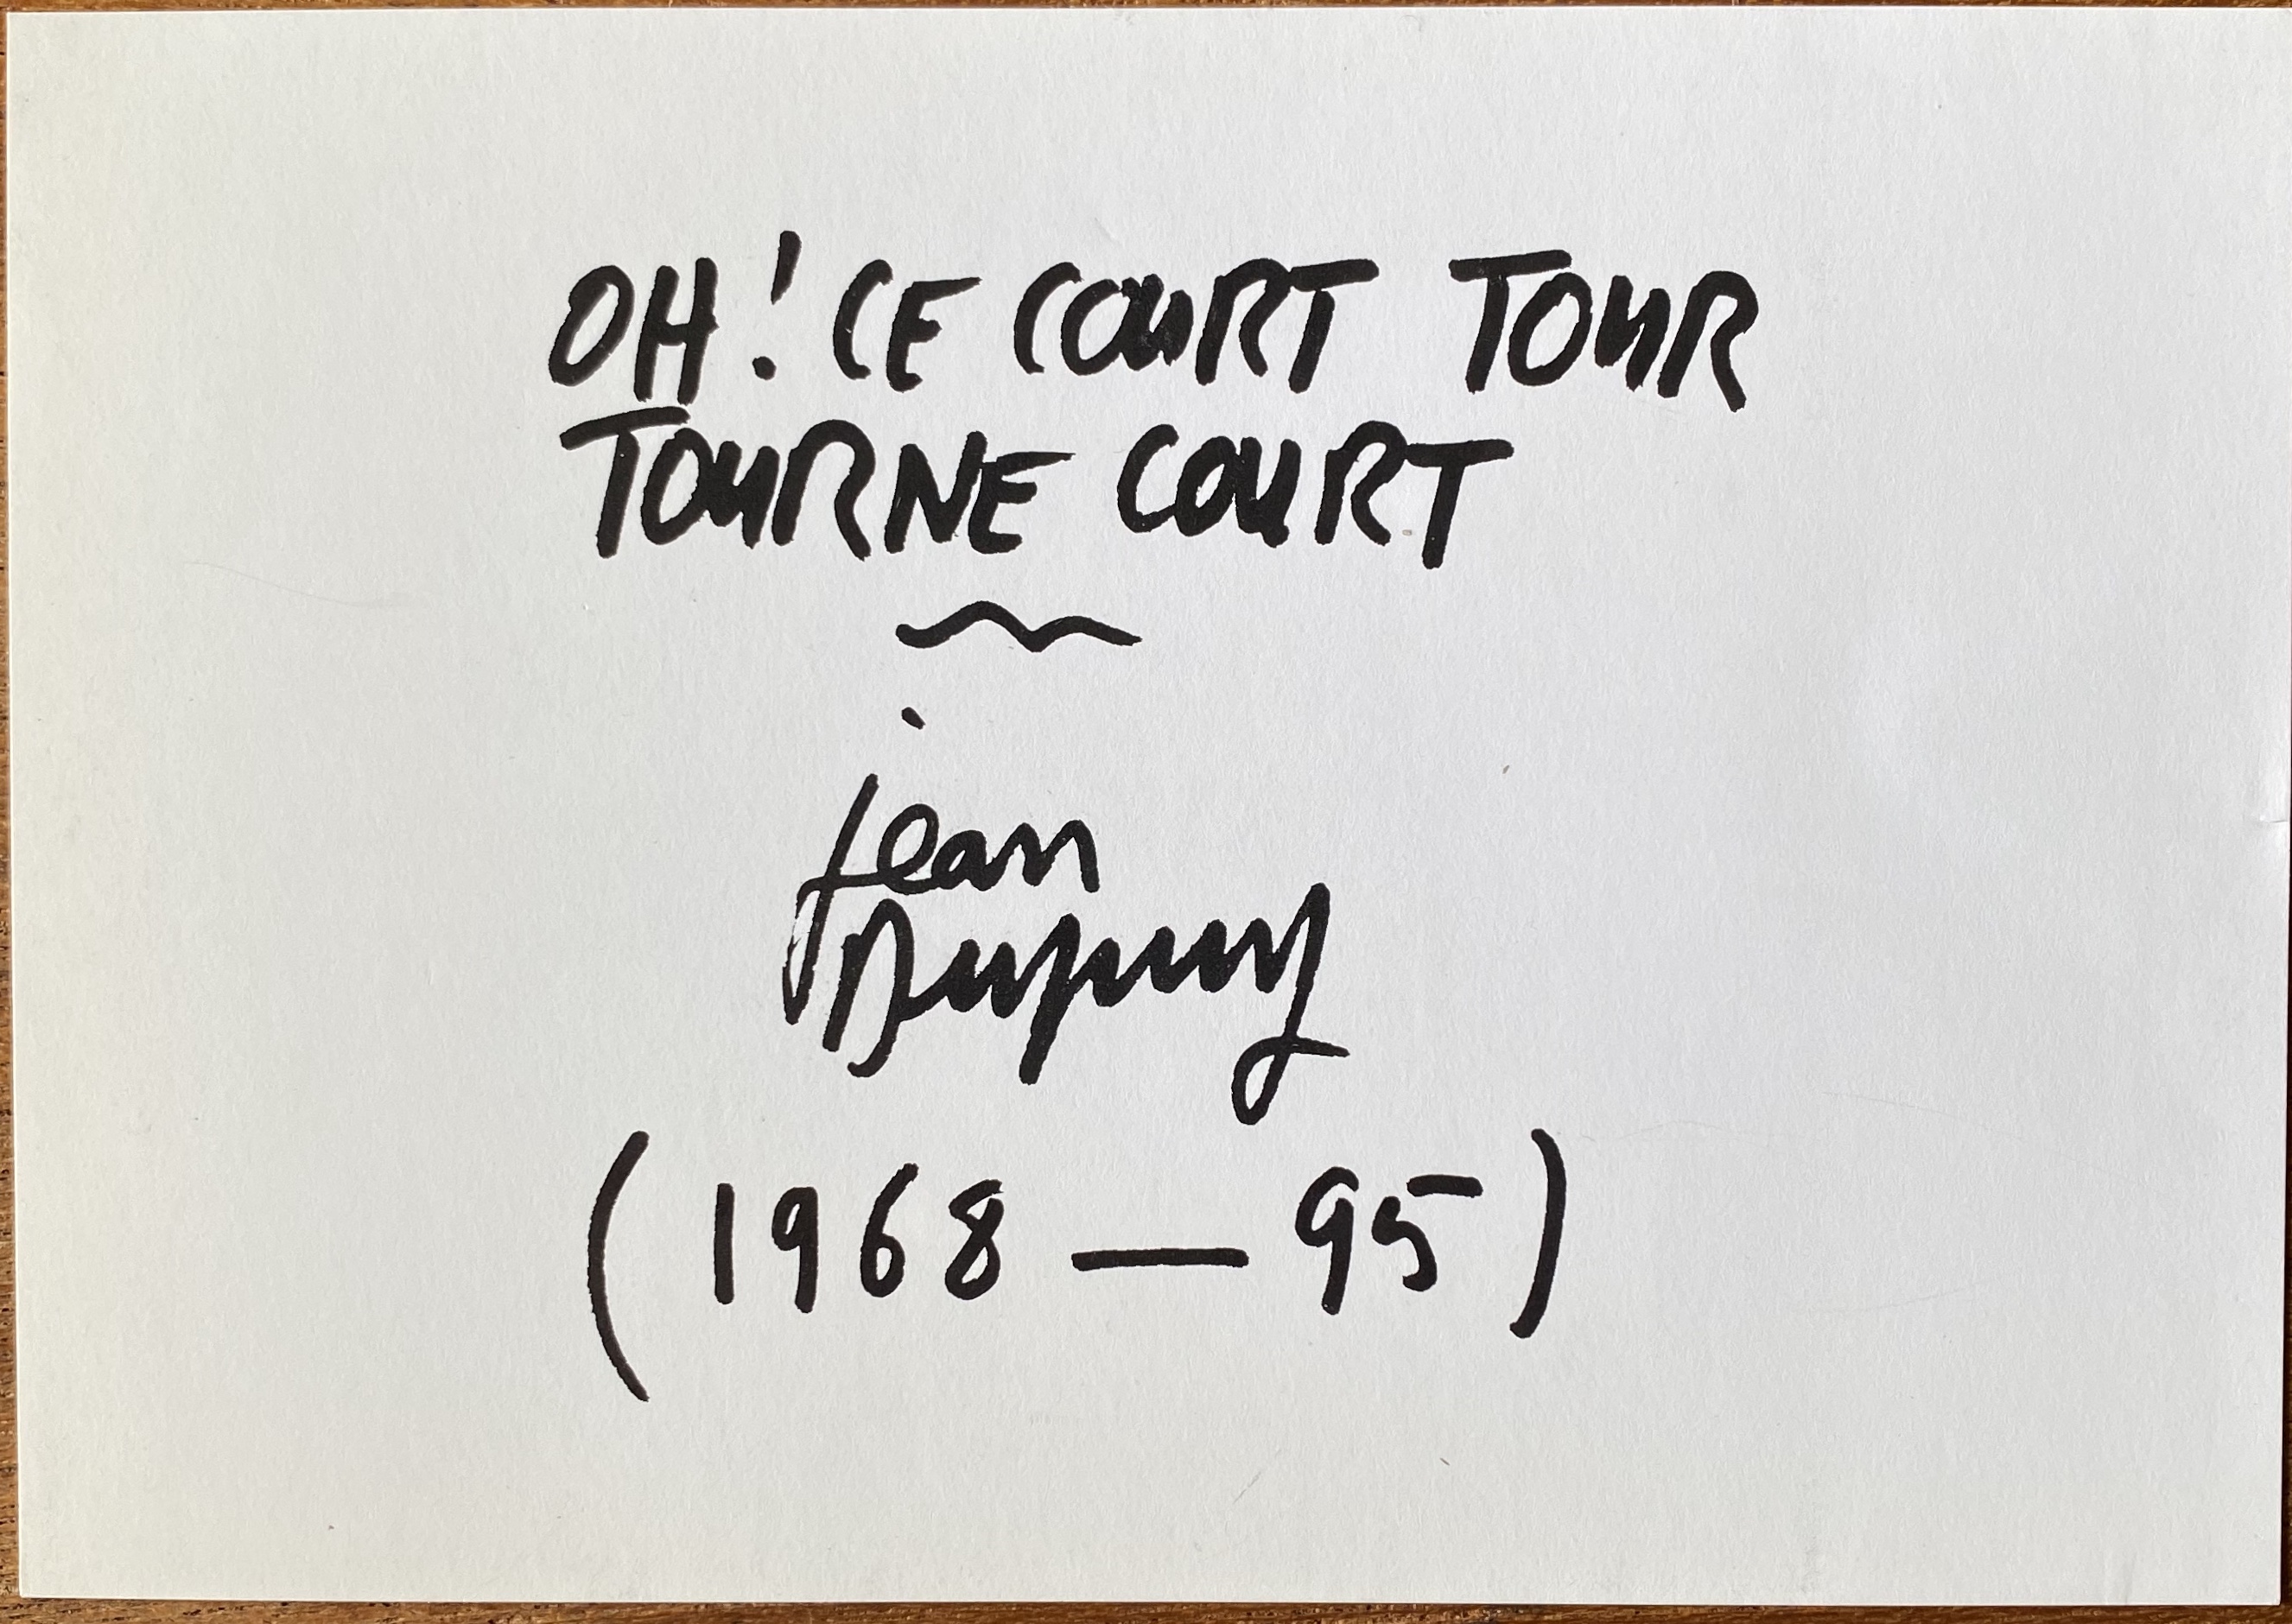 OH! CE COURT TOUR
TOURNE COURT
~
jean
Dupuy
(1968 — 95)